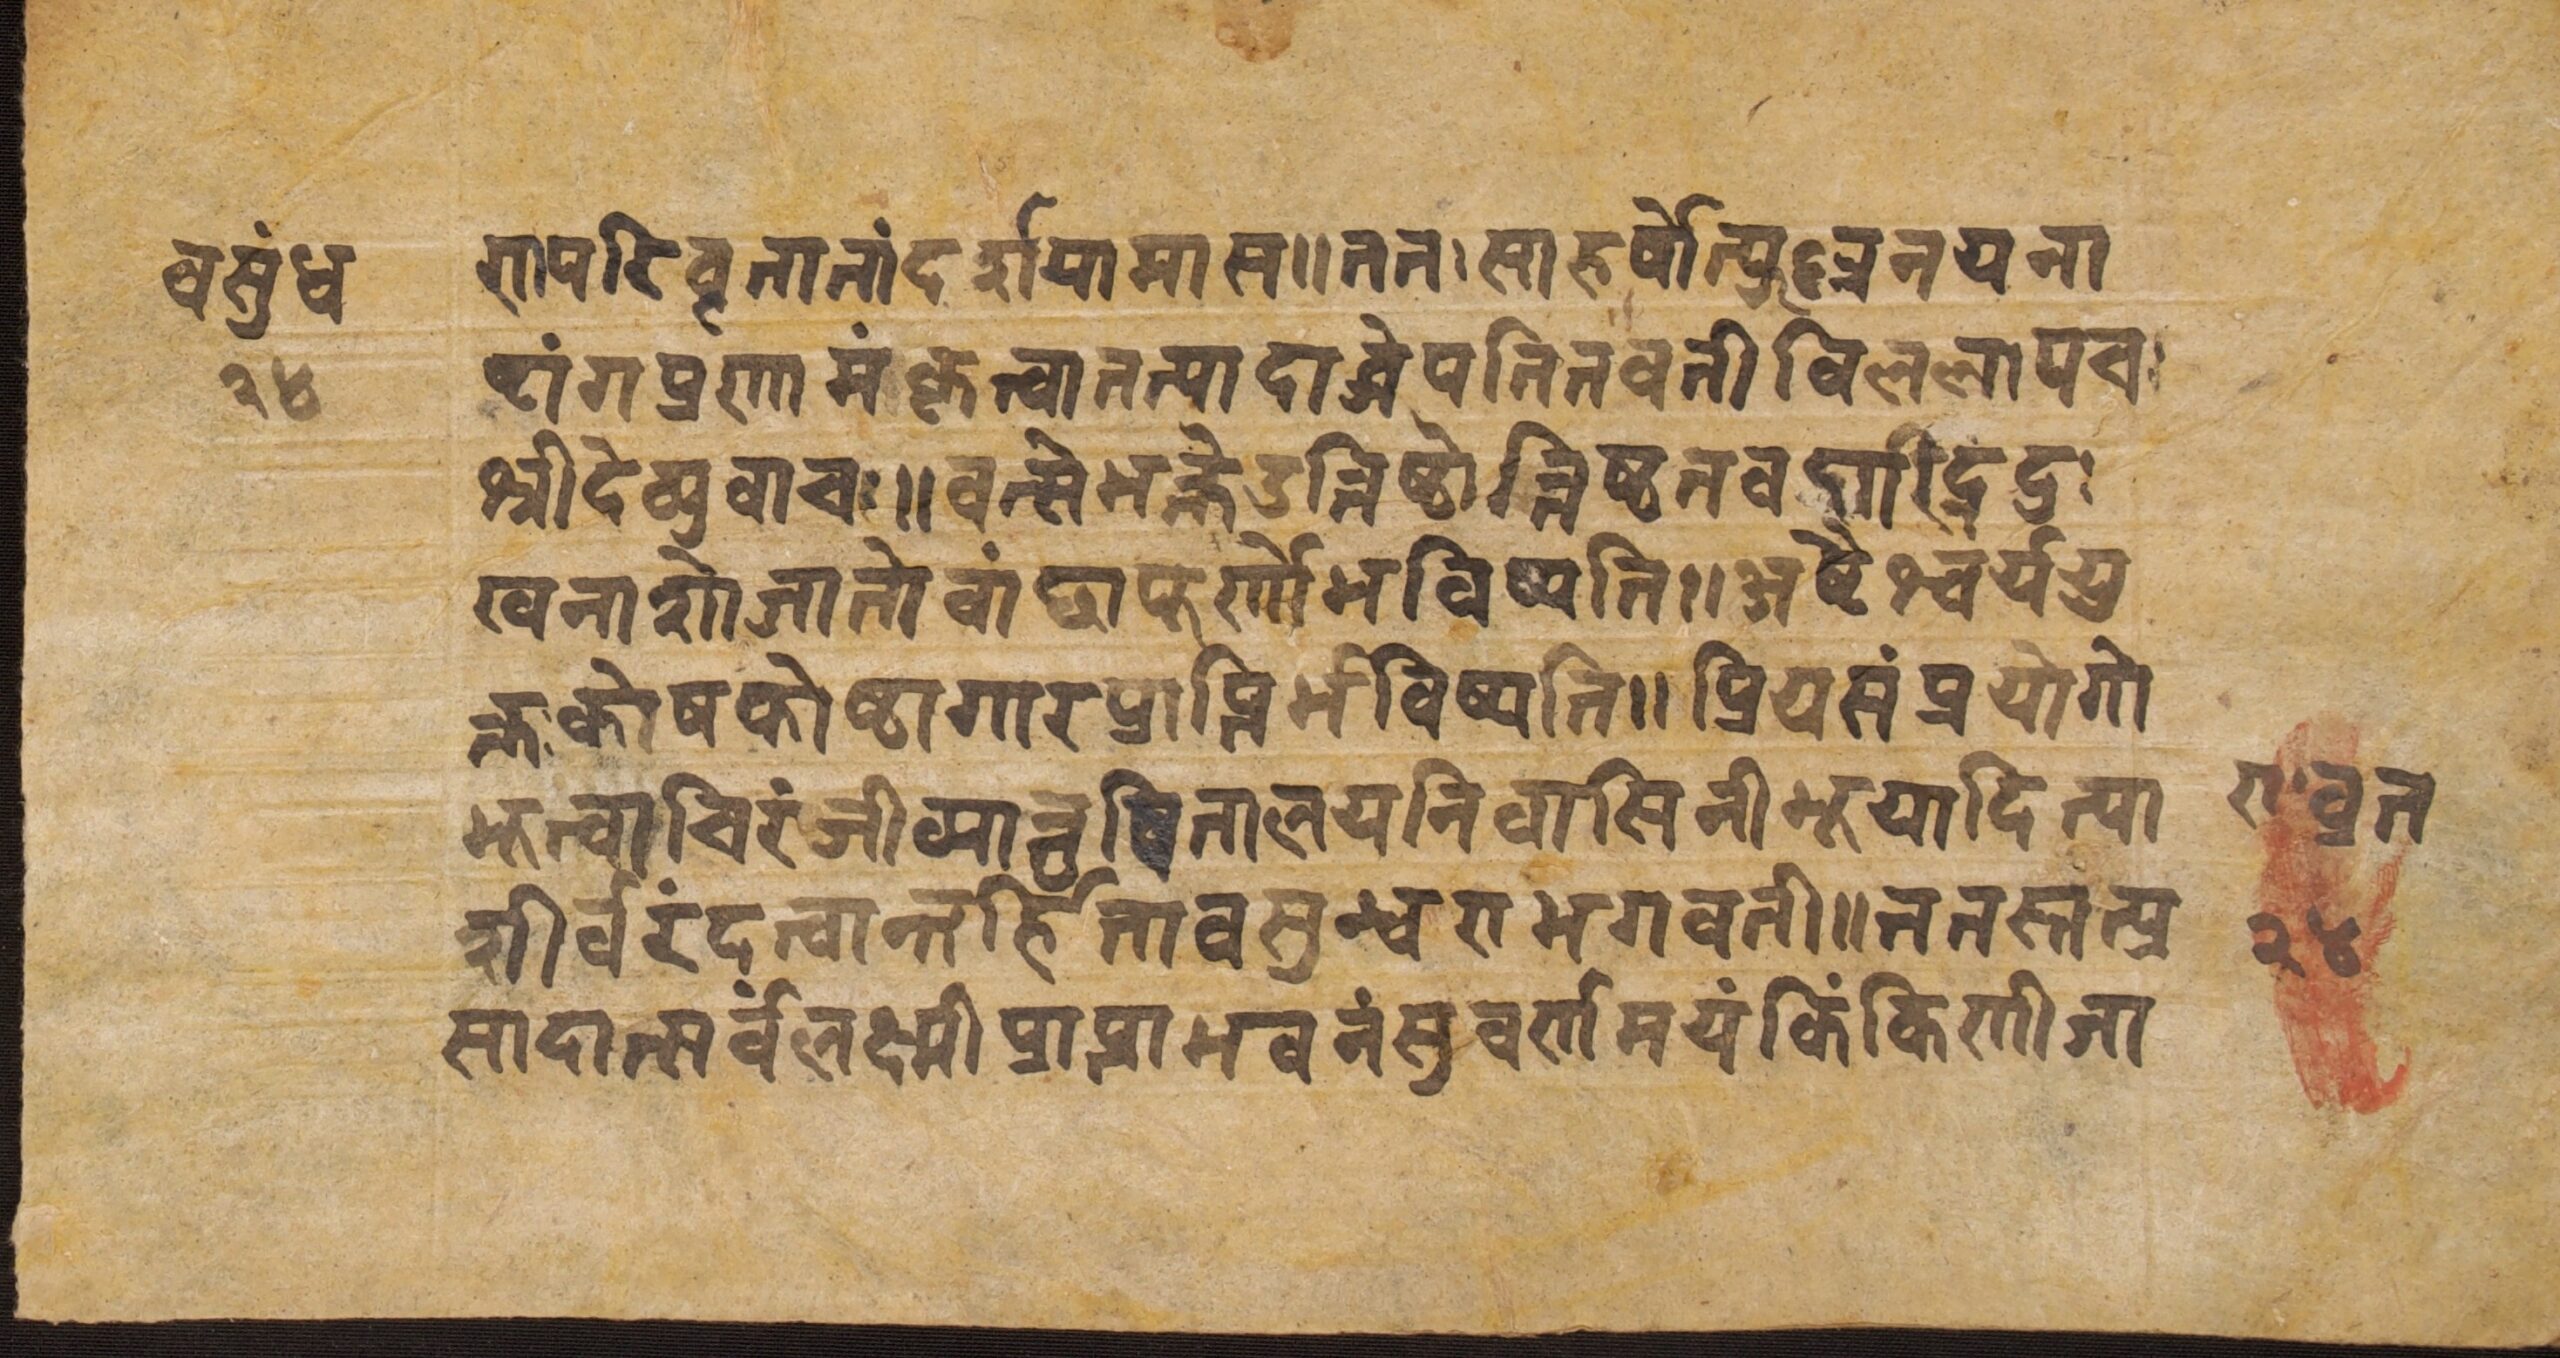 वसुंध
२४
रापरिवृतातांदर्शयामास॥ततःसाहर्षोत्फुल्लनयना
ष्टांगप्रणामंकृत्वातत्पादाब्जेपतितवतीविललापचः
श्रीदेव्युवाचः॥वत्सेमद्भक्तेउत्तिष्ठोत्तिष्ठतवदारिद्रदुः
खनाशोजातोवांछापूर्णोभविष्यति॥अष्टैश्वर्ययु
क्तःकोषकोष्ठागारप्राप्तिर्भविष्यति॥प्रियसंप्रयोगो
भूत्वाचिरंजीव्यात्तुषितालयनिवासिनीभूयादित्या
शीर्वरंदत्वान्तर्हितावसुन्धराभगवती॥ततस्तत्प्र
सादात्सर्वलक्ष्मीप्राप्ताभवनंसुवर्णमयंकिंकिणीजा
राव्रत
२४